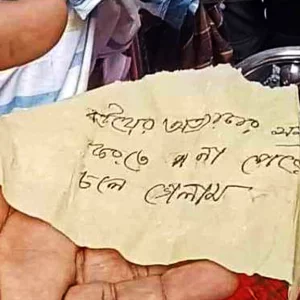 বউয়ের অত্যাচার সহ্য
করতে না পেরে
চলে গেলাম